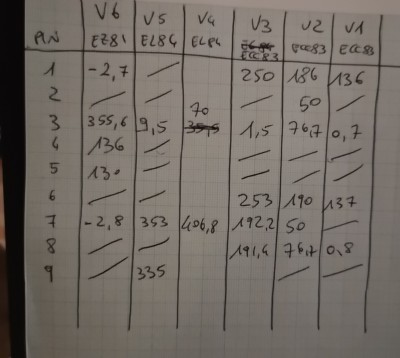 V6 V5 V4 V3 V2 V1
PIN EZ81 EL84 EL84 ECC83 ECC83 ECC83
1 -2,7 / 250 186 136
2 / / / 50 /
70
3 355,6 9,5 1,5 76,7 0,7
4 136 / / / /
5 130 / / / /
6 / / 253 190 137
7 -2,8 353 406,8 192,2 50 /
8 / / 191,4 76,7 0,8
9 / 335 / /